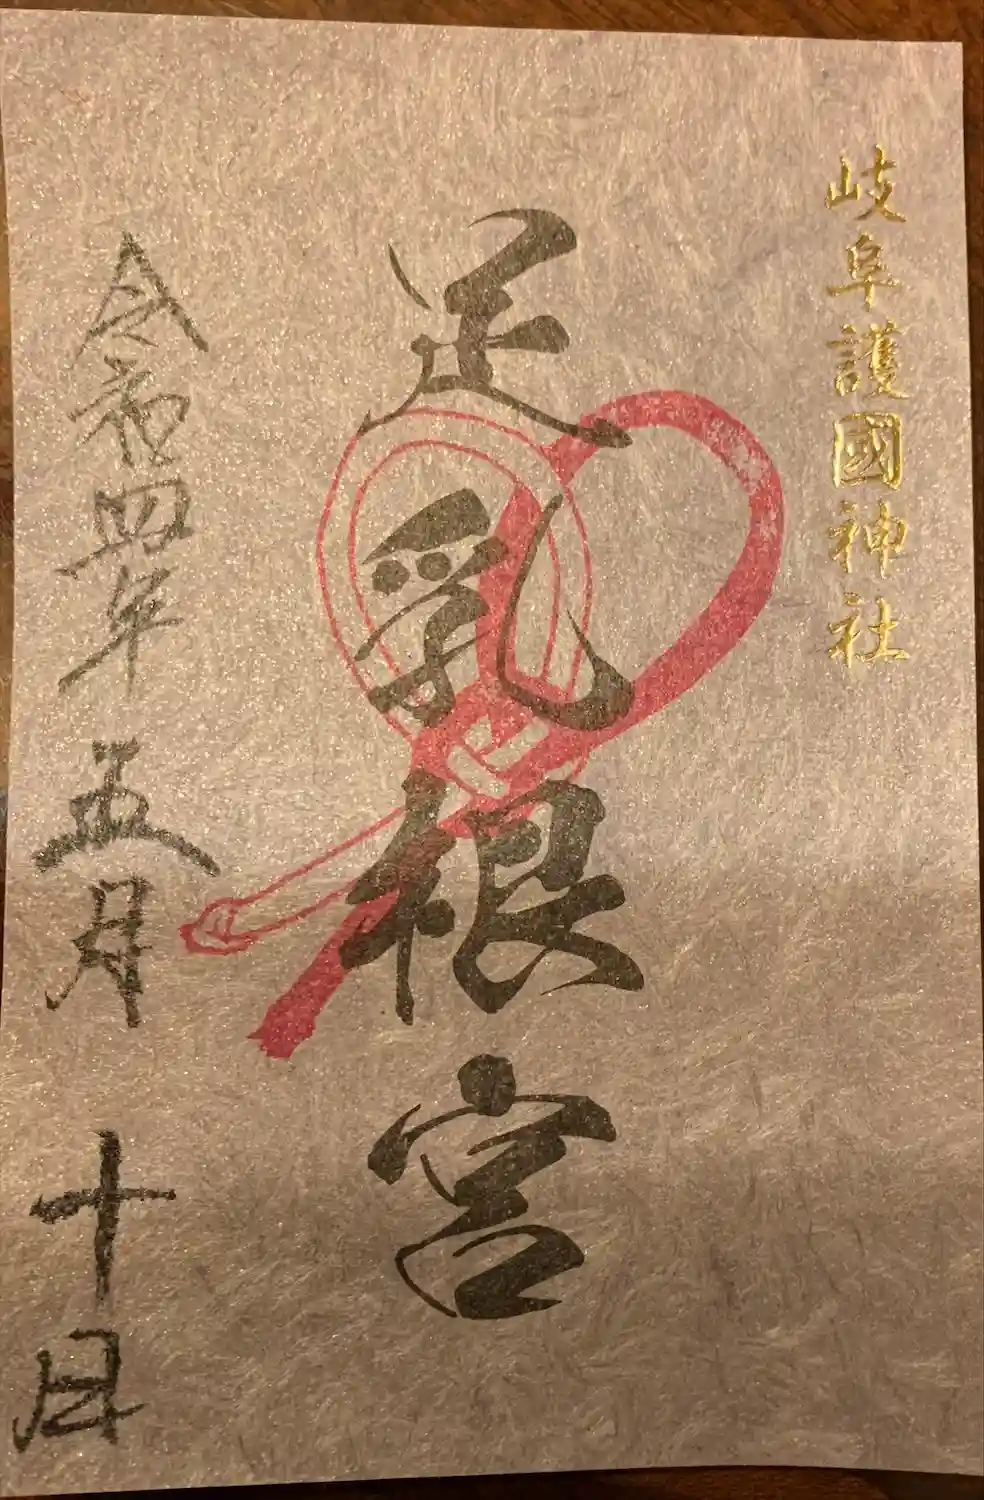 岐阜護國神社
足乳根宮
令和四年 五月 十日